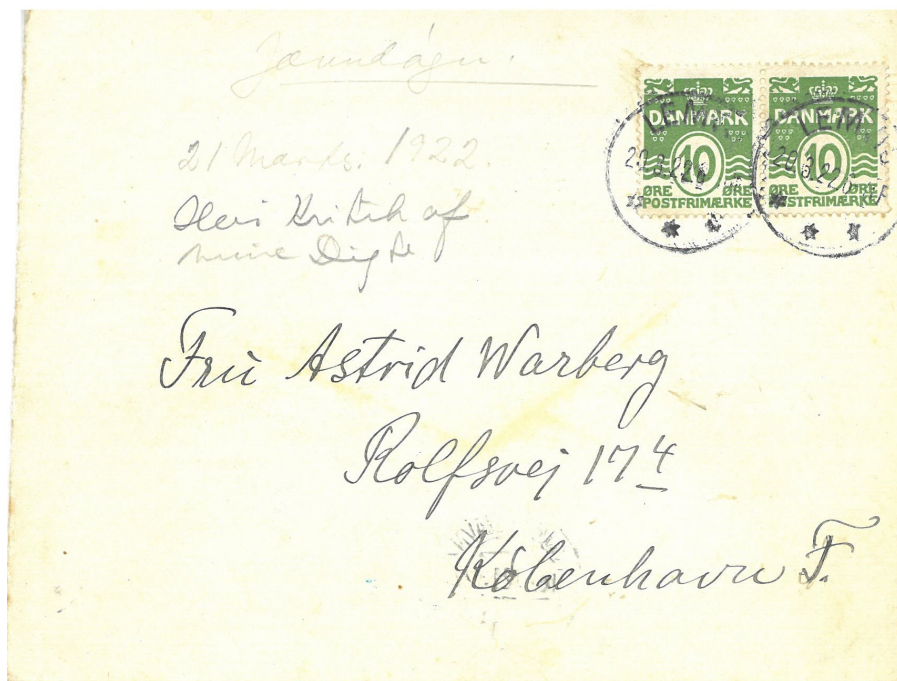 Jævndøgn.
21 Marts. 1922.
Hans Kritik af
mine Digte
DANMARK
10
ØRE ØRE
POSTFRIMÆRKE
DANMARK
10
ØRE ØRE
POSTFRIMÆRKE
LEM
LEM
Fru Astrid Warberg
Rolfsvej 17 4
København F.